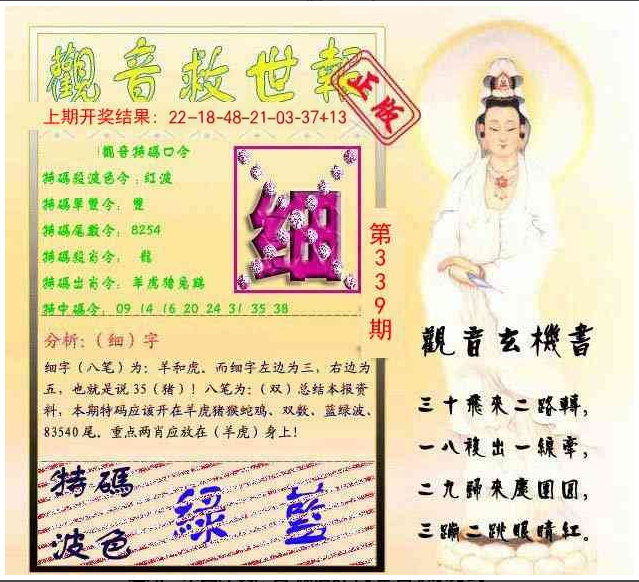 觀音救世報
正版
上期开奖结果：22-18-48-21-03-37+13
觀音特碼口令
特碼殺波色令：红波
特碼單雙令：雙
特碼尾數令：8254
特碼殺肖令：龍
特碼出肖令：羊虎猪兔鷄
特中碼令：09 14 16 20 24 31 35 38
细
第339期
分析:（细）字
细字（八笔）为：羊和虎。而细字左边为三，右边为
五，也就是说35（猪）！八笔为：（双）总结本报资
料，本期特码应该开在羊虎猪猴蛇鸡、双数、蓝绿波、
83540尾。重点两肖应放在（羊虎）身上！
特碼
波色
綠 藍
觀音玄機書
三十飛來二路轉，
一八複出一線牽，
二九歸來慶團圓，
三蹦二跳眼睛紅。